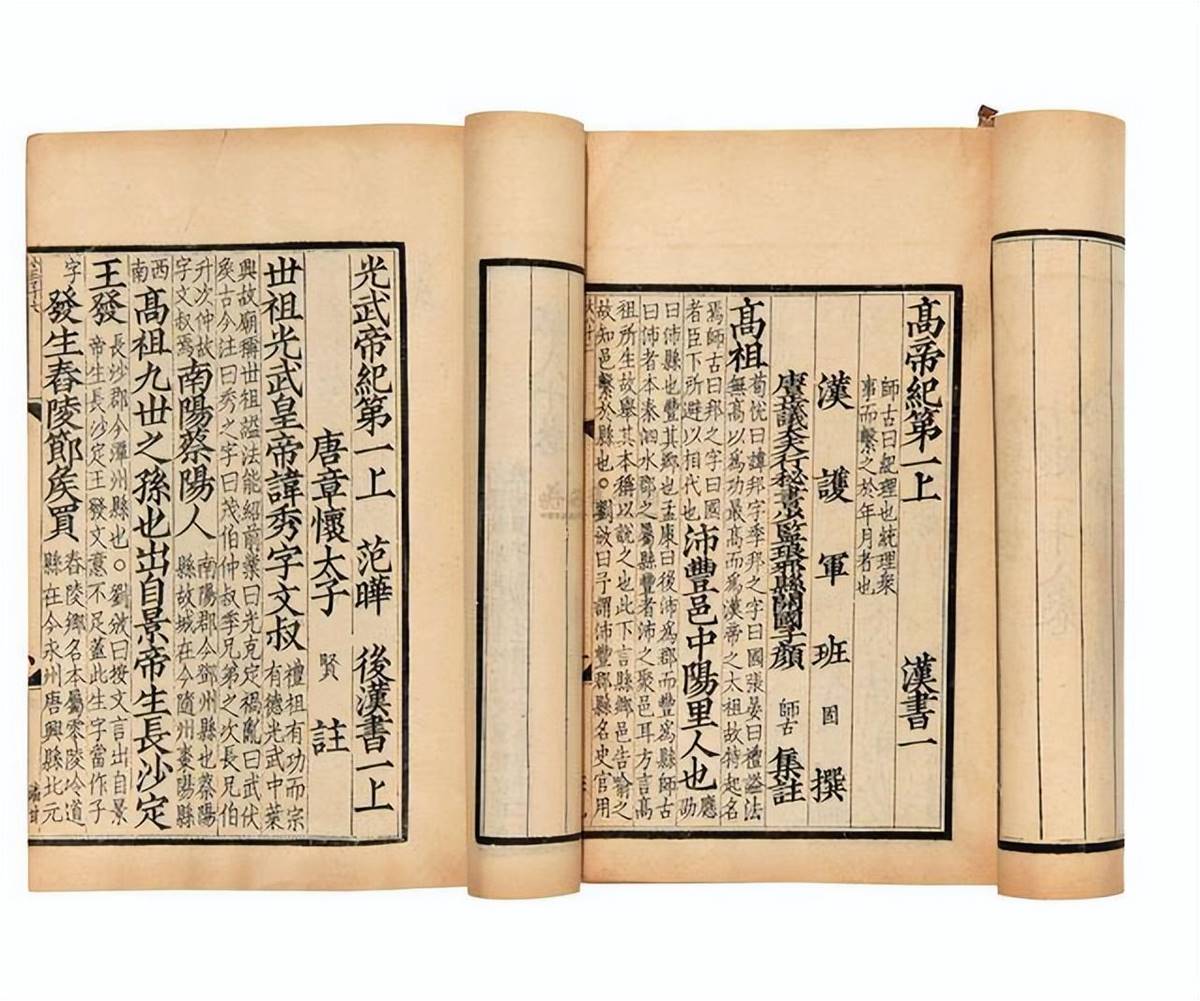 髙帝紀第一上 漢書一
師古曰紀理也統理衆
事而繫之於年月者也
漢護軍班固撰
唐正議大夫行秘書少監琅邪縣開國子顔師古集註
髙祖 荀恱曰諱邦字季邦之字曰國張晏曰禮謚法
無髙以爲功最髙而爲漢帝之太祖故特起名
焉師古曰邦之字曰國
者臣下所避以相代也 沛豐邑中陽里人也 應劭
曰沛縣也豐其鄉也孟康曰後沛爲郡而豐爲縣師古
曰沛者本秦泗水郡之屬縣豐者沛之聚邑耳方言髙
祖所生故舉其本稱以說之也此下言縣鄉邑告喻之
故知邑繫於縣也。劉攽曰予謂沛豐郡縣名史官用
光武帝紀第一上 范曄 後漢書一上
唐章懷太子賢註
丗祖光武皇帝諱秀字文叔 禮祖有功而宗
有德光武中葉
興故廟稱丗祖謚法能紹前業曰光克定禍亂曰武伏
矦古今注曰秀之字曰茂伯仲叔季兄弟之次長兄伯
升次仲故
字文叔焉 南陽蔡陽人 南陽郡今鄧州縣也蔡陽
縣故城在今隨州棗陽縣
西南 髙祖九丗之孫也出自景帝生長沙定
王發 長沙郡今潭州縣也。劉攽曰按文言出自景
帝生長沙定王發文意不足蓋此生字當作子
字 發生舂陵節矦買 舂陵鄉名本屬零陵冷道
縣在今永州唐興縣北元